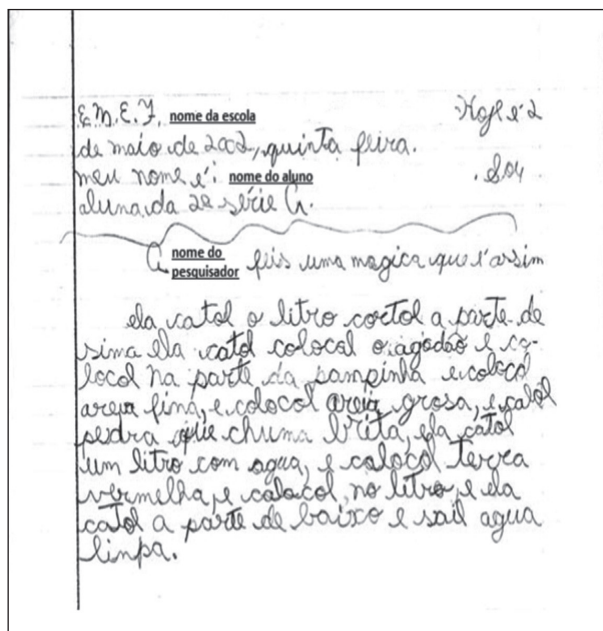 E.M.E.F. nome da escola Hoje é 2
de maio de 2002, quinta feira.
meu nome é: nome do aluno . Sou
aluna da 2ª série A.
A nome do pesquisador feis uma magica que é assim
ela catol o litro cortol a parte de
sima ela catol colocol o agodão e co-
locol na parte da pampinha e colocol
areia fina, e colocol areia grosa, e catol
pedra que chuma brita, ela catol
um litro com agua, e colocol terra
vermelha, e colocol, no litro, e ela
catol a parte de baixo e sail agua
linpa.